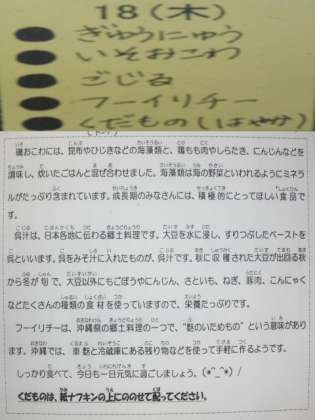 18(木)
ぎゅうにゅう
いそおこわ
ごじる
フーイリチー
くだもの(はやか)
磯おこわには、昆布やひじきなどの海藻類と、鶏もも肉やしらたき、にんじんなどを
調味し、炊いたごはんと混ぜ合わせました。海藻類は海の野菜といわれるようにミネラ
ルがたっぷり含まれています。成長期のみなさんには、積極的にとってほしい食品で
す。
呉汁は、日本各地に伝わる郷土料理です。大豆を水に浸し、すりつぶしたペーストを
呉といいます。呉をみそ汁に入れたものが、呉汁です。秋に収穫された大豆が出回る秋
から冬が旬で、大豆以外にもごぼうやにんじん、さといも、ねぎ、豚肉、こんにゃく
などたくさんの種類の食材を使っていますので、栄養たっぷりです。
フーイリチーは、沖縄県の郷土料理の一つで、"麩のいためもの"という意味があり
ます。沖縄では、車麩と冷蔵庫にある残り物などを使って手軽に作るようです。
しっかり食べて、今日も一日元気に過ごしましょう。(*^_^*)/
くだものは、紙ナフキンの上にのせて配ってください。